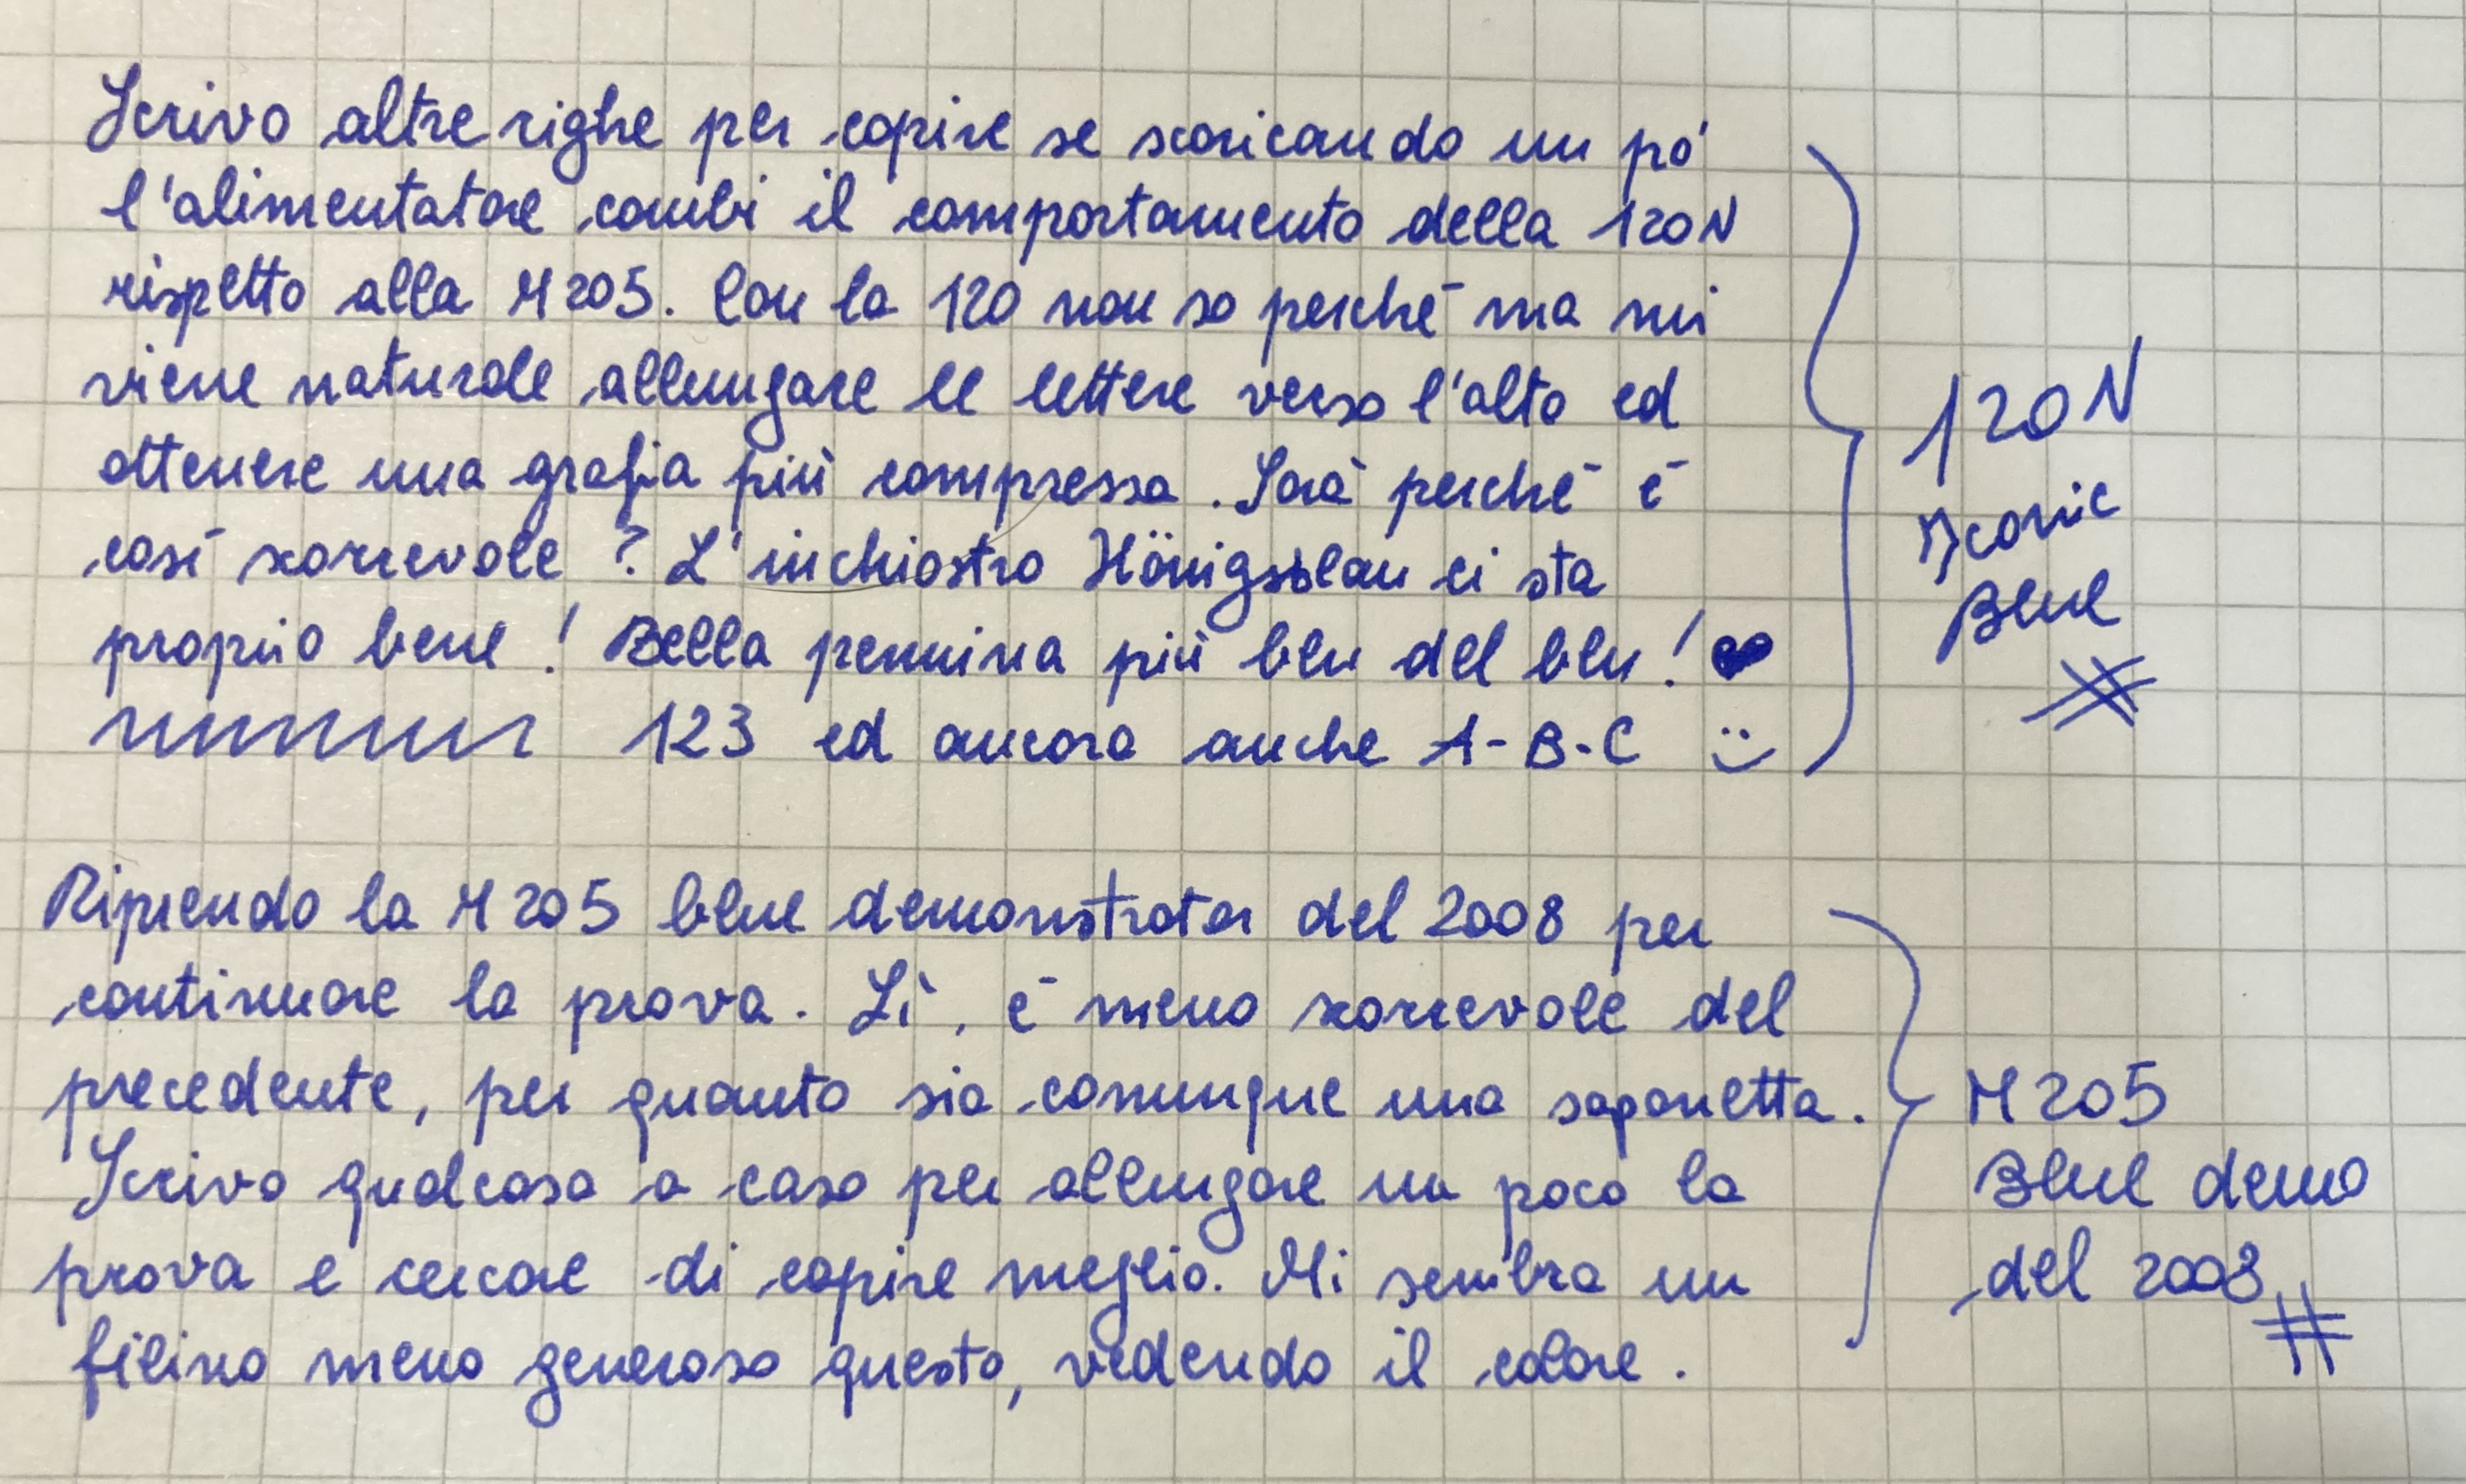 Scrivo altre righe per capire se scaricando un pó
l'alimentatore cambi il comportamento della 120N
rispetto alla M205. Con la 120 non so perché ma mi
viene naturale allungare le lettere verso l'alto ed
ottenere una grafia più compressa. Sarà perché é
così scorrevole? L'inchiostro Hönigsblau ci sta
proprio bene! Bella pennina più blu del blu! ♥
123 ed ancora anche A-B-C :)
120N
Iconic
Blue
Riprendo la M205 blue demonstrator del 2008 per
continuare la prova. Sì, é meno scorrevole del
precedente, per quanto sia comunque una saponetta.
Scrivo qualcosa a caso per allungare un poco la
prova e cercare di capire meglio. Mi sembra un
filino meno generoso questo, vedendo il colore.
M205
Blue demo
del 2008
#